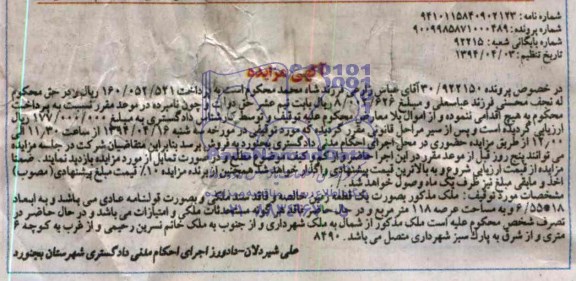 شماره نامه: ۹۴۱۰۱۱۵۸۴۰۹۰۲۱۲۳
شماره پرونده: ۹۰۰۹۹۸۵۸۷۱۰۰۰۴۸۹
شماره بایگانی شعبه: ۹۲۲۱۵
تاریخ تنظیم: ۱۳۹۴/۰۴/۰۳
آگهی مزایده
در خصوص پرونده ۳۰/۹۲۲۱۵۰ آقای عباس فرزند شاه محمد محکوم است به پرداخت ۱۶۰/۰۵۲/۵۲۱ ریال در حق محکوم
له نجف محسنی فرزند عباسعلی و مبلغ ۶۲۶/ ۸/۰ ریال بابت نیم عشر حق دولت و چون نامبرده در موعد مقرر نسبت به پرداخت
محکوم به هیچ اقدامی ننموده و از اموال بلا معارض محکوم علیه توقیف و توسط کارشناس دادگستری به مبلغ ۱۷۷/۰۰۰/۰۰۰ ریال
ارزیابی گردیده است و پس از سیر مراحل قانونی مقرر گردیده که مورد توقیفی در مورخه سه شنبه ۱۳۹۴/۰۴/۱۶ از ساعت ۱۱,۳۰ الی
۱۲,۰۰ از طریق مزایده حضوری در محل اجرای احکام مدنی دادگستری بجنورد به فروش برسد بنابراین متقاضیان شرکت در جلسه مزایده
می توانند پنج روز قبل از موعد مقرر در این اجرا حاضر صورت تمایل از مورد مزایده بازدید نمایند. ضمنا
مزایده از قیمت ارزیابی شروع و به بالاترین قیمت پیشنهادی واگذار خواهد شد همچنین از برنده مزایده ۱۰٪ قیمت مبلغ پیشنهادی (مصوب)
اخذ و مابقی مبلغ نیز ظرف یک ماه وصول خواهد شد.
مشخصات مورد توقیف: ملک مذکور بصورت یک قطعه زمین خالصه و فاقد سند ملکی و بصورت قولنامه عادی می باشد و به ابعاد
۱۸*۶/۵۵ و به مساحت عرصه ۱۱۸ متر مربع و در حال حاضر فاقد هر گونه مستحدثات ملکی و امتیازات می باشد و در حال حاضر در
تصرف شخص محکوم علیه است ملک مذکور از شمال به ملک شهرداری و از جنوب به ملک خانم نسرین رحیمی و از غرب به کوچه ۶
متری و از شرق به پارک سبز شهرداری متصل می باشد. ۸۴۹۰
علی شیردلان-دادورز اجرای احکام مدنی دادگستری شهرستان بجنورد